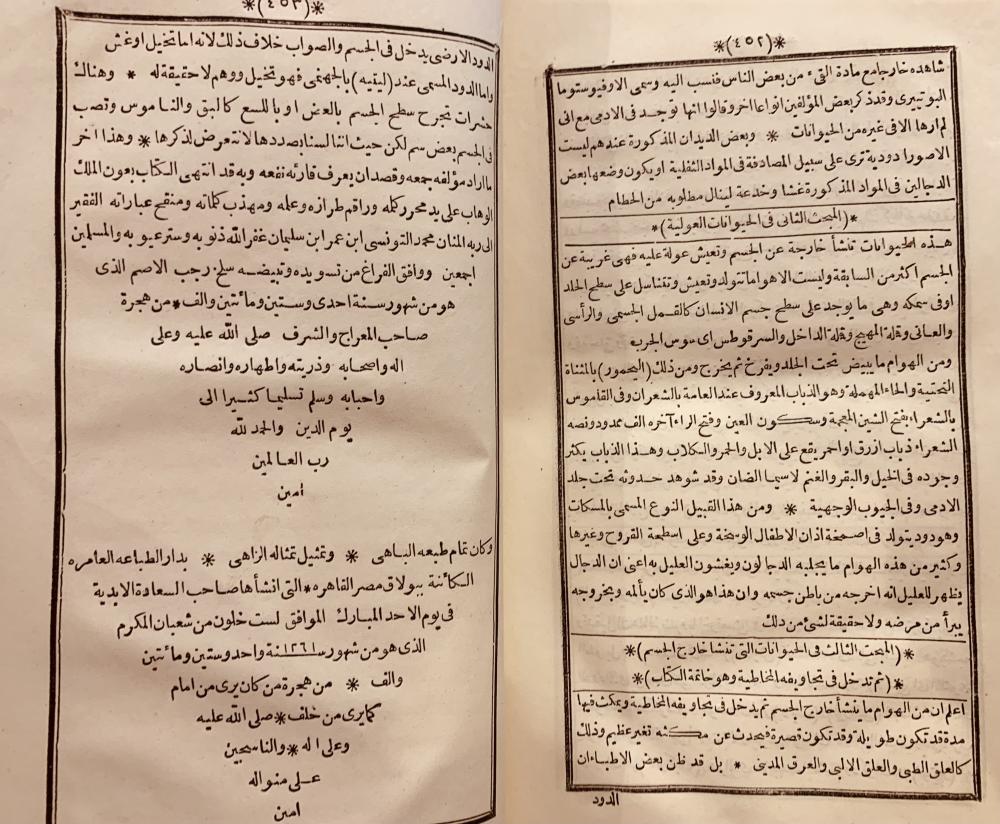 *(٤٥٢)*
شاهده خارجا مع مادة القيء من بعض الناس فنسب اليه وسمى الاوفيوستوما
البوتيرى وقد ذكر بعض المؤلفين انواعا اخر وقالوا انها توجد فى الادمى مع انى
لم ارها الا فى غيره من الحيوانات * وبعض الديدان المذكورة عندهم ليست
الا صورا دودية ترى على سبيل المصادفة فى المواد الثفلية او يكون وضعها بعض
الدجالين فى المواد المذكورة غشا وخدعة لينال مطلوبه من الحطام
*(المبحث الثانى فى الحيوانات العولية)*
هذه الحيوانات تنشأ خارجة عن الجسم وتعيش عولة عليه فهى غريبة عن
الجسم اكثر من السابقة وليست الا هواما تتولد وتعيش وتتناسل على سطح الجلد
او فى سمكه وهى ما يوجد على سطح جسم الانسان كالقمل الجسمى والرأسى
والعانى وقملة المهيج وقملة الداخل والسرقوطس اى سوس الجرب
ومن الهوام ما يبيض تحت الجلد ويفرخ ثم يخرج ومن ذلك (اليحمور) بالمثناة
التحتية والحاء المهملة وهو الذباب المعروف عند العامة بالشعران وفى القاموس
بالشعراء بفتح الشين المعجمة وسكون العين وفتح الراء آخره الف ممدود ونصه
الشعراء ذباب ازرق او احمر يقع على الابل والحمر والكلاب وهذا الذباب يكثر
وجوده فى الخيل والبقر والغنم لاسيما الضان وقد شوهد حدوثه تحت جلد
الادمى وفى الجيوب الوجهية * ومن هذا القبيل النوع المسمى بالمسكات
وهو دود يتولد فى اصمخة اذان الاطفال الوسخة وعلى اسطحة القروح وغيرها
وكثير من هذه الهوام ما يجلبه الدجالون ويغشون العليل به اعنى ان الدجال
يظهر للعليل انه اخرجه من باطن جسمه وان هذا هو الذى كان يألمه وبخروجه
يبرأ من مرضه ولا حقيقة لشئ من ذلك
*(المبحث الثالث فى الحيوانات التى تنشا خارج الجسم)*
*(ثم تدخل فى تجاويفه المخاطية وهو خاتمة الكتاب)*
اعلم ان من الهوام ما ينشأ خارج الجسم ثم يدخل فى تجاويفه المخاطية ويمكث فيها
مدة قد تكون طويلة وقد تكون قصيرة فيحدث عن مكثه تغير عظيم وذلك
كالعلق الطبى والعلق الالبى والعرق المدينى * بل قد ظن بعض الاطباء ان
الدود
*(٤٥٣)*
الدود الارضى يدخل فى الجسم والصواب خلاف ذلك لانه اما تخيل او غش
واما الدود المسمى عند (لينيه) بالجهنمى فهو تخيل ووهم لا حقيقة له * وهناك
حشرات تجرح سطح الجسم بالعض او باللسع كالبق والناموس وتصب
فى الجسم بعض سم لكن حيث اننا لسنا بصددها لا نتعرض لذكرها * وهذا اخر
ما اراد مؤلفه جمعه وقصد ان يعرف قارئه نفعه وبه قد انتهى الكتاب بعون الملك
الوهاب على يد محرر كلمه وراقم طرازه وعلمه ومهذب كلماته ومنقح عباراته الفقير
الى ربه المنان محمد التونسى ابن عمر ابن سليمان غفر الله ذنوبه وستر عيوبه والمسلمين
اجمعين ووافق الفراغ من تسويده وتبيضه سلخ رجب الاصم الذى
هو من شهور سنة احدى وستين ومائتين والف * من هجرة
صاحب المعراج والشرف صلى الله عليه وعلى
اله واصحابه وذريته واطهاره وانصاره
واحبابه وسلم تسليما كثيرا الى
يوم الدين والحمد لله
رب العالمين
أمين
وكان تمام طبعه الباهى * وتمثيل تمثاله الزاهى * بدار الطباعه العامره
الكائنة ببولاق مصر القاهره * التى انشأها صاحب السعادة الابدية
فى يوم الاحد المبارك الموافق لست خلون من شعبان المكرم
الذى هو من شهور سنة ١٢٦١ واحد وستين ومائتين
والف * من هجرة من كان يرى من امام
كما يرى من خلف * صلى الله عليه
وعلى اله * والناسجين
على منواله
امين